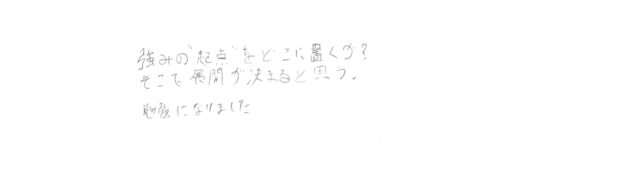 強みの"起点"をどこに置くか?
そこで展開が決まると思う。
勉強になりました